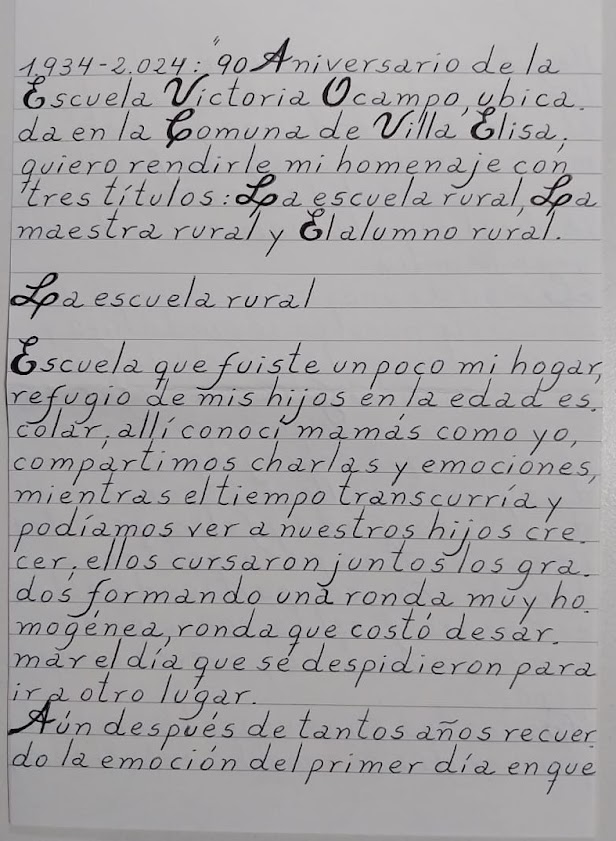 1.934-2.024: "90 Aniversario de la
Escuela Victoria Ocampo, ubica.
da en la Comuna de Villa Elisa,
quiero rendirle mi homenaje con
tres títulos: La escuela rural, La
maestra rural y El alumno rural.
La escuela rural
Escuela que fuiste un poco mi hogar,
refugio de mis hijos en la edad es.
colar, allí conocí mamás como yo,
compartimos charlas y emociones,
mientras el tiempo transcurría y
podíamos ver a nuestros hijos cre.
cer, ellos cursaron juntos los gra.
dos formando una ronda muy ho.
mogénea, ronda que costó desar.
mar el día que se despidieron para
ir a otro lugar.
Aún después de tantos años recuer.
do la emoción del primer día en que